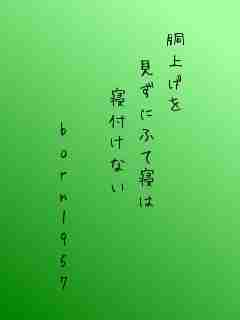 胴上げを
見ずにふて寝は
寝付けない
born1957